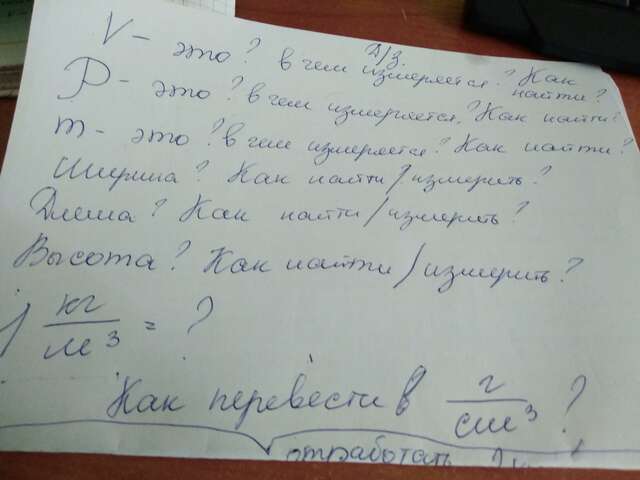 Д/З.
V - это? в чем измеряется? Как найти?
P - это? в чем измеряется? Как найти?
m - это? в чем измеряется? Как найти?
Ширина? Как найти/измерить?
Длина? Как найти/измерить?
Высота? Как найти/измерить?
кг/м³ = ?
Как перевести в г/см³?
отработать